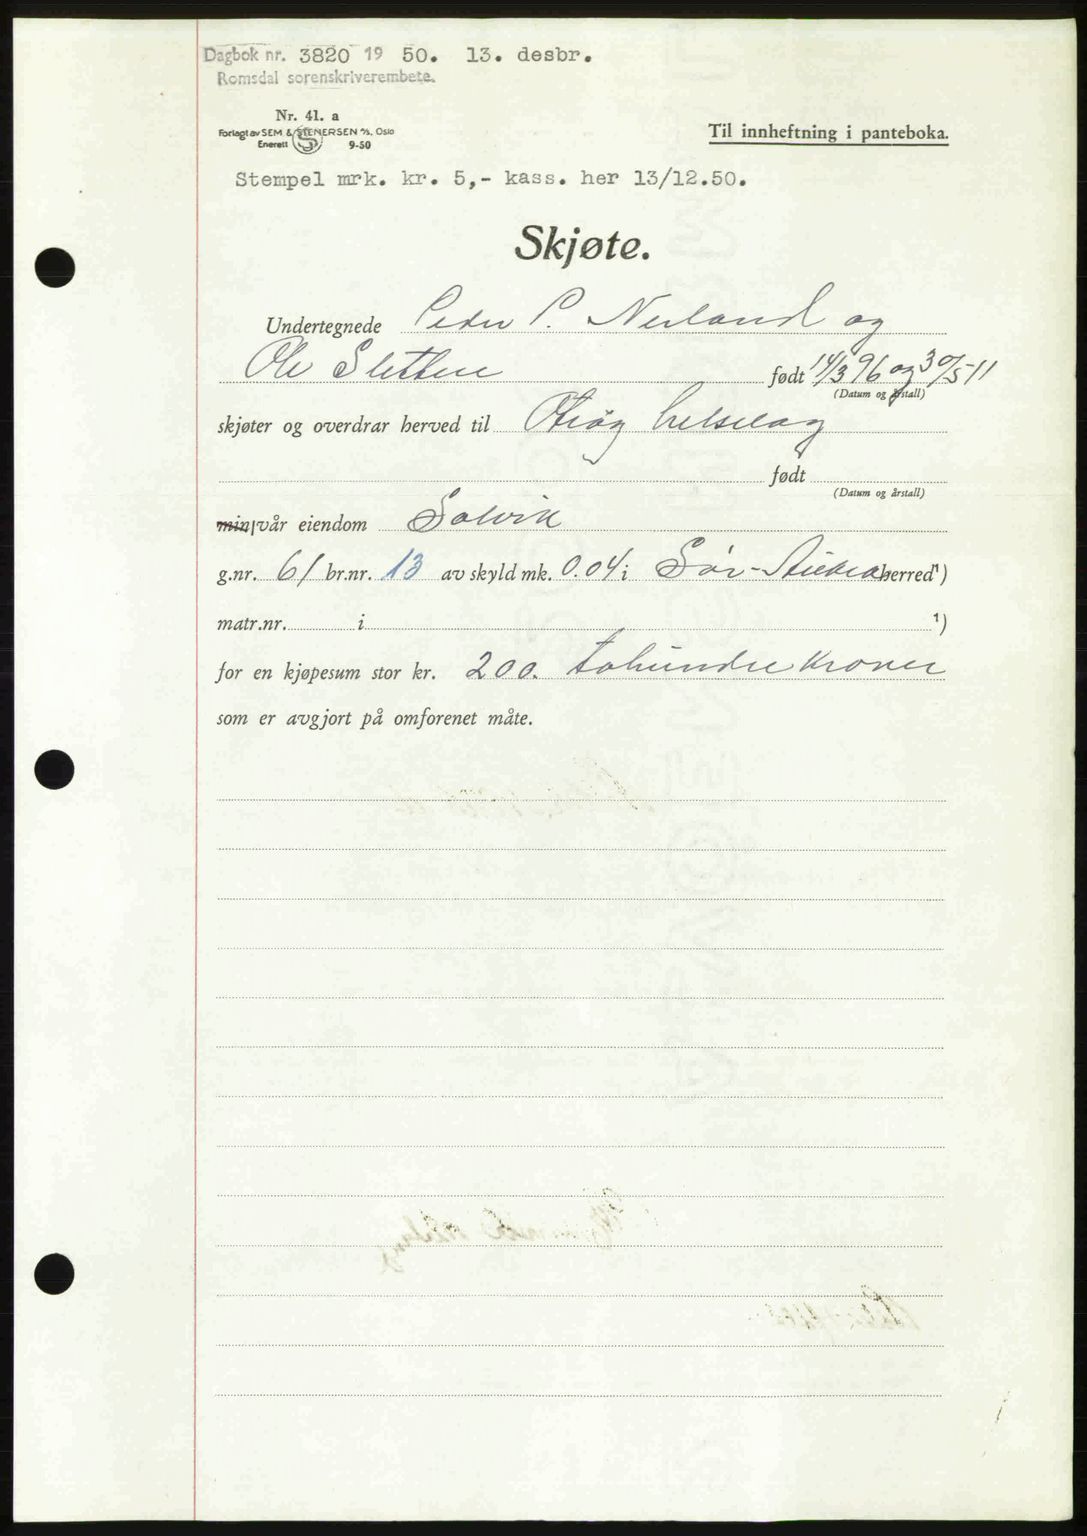 Dagbok nr. 3820 19 50. 13. desbr.
Romsdal sorenskriverembete.
Nr. 41. a
Forlagt av SEM & STENERSEN A/S, Oslo
Enerett 9-50
Til innheftning i panteboka.
Stempel mrk. kr. 5,- kass. her 13/12.50.
Skjøte.
Undertegnede Peder P. Nerland og
Ole Sletten født 14/3 96 og 30/5-11
(Datum og årstall)
skjøter og overdrar herved til Otrøy helselag
født
(Datum og årstall)
min/vår eiendom Solvik
g.nr. 61 br.nr. 13 av skyld mk. 0.04 i Sør-Aukra herred¹)
matr.nr. i ¹)
for en kjøpesum stor kr. 200. tohundre kroner
som er avgjort på omforenet måte.